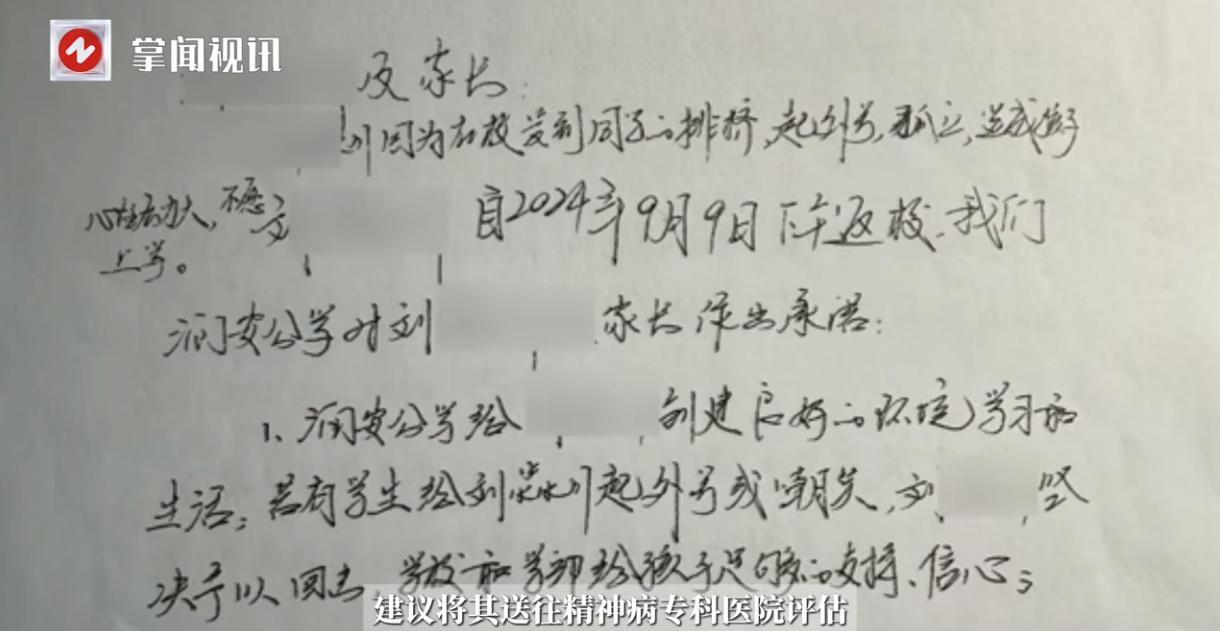 掌闻视讯
及家长:
川因为在校受到同学的排挤,起外号,孤立,造成孩子
大,不愿 自2024年9月9日下午返校.我们
上学。
润安公学对刘 家长作出承诺:
1、润安公学给 创建良好的环境学习和
生活;若有学生给刘川起外号或嘲笑,刘 坚
决予以回击,学校和学部给孩子足够的支持、信心;
建议将其送往精神病专科医院评估